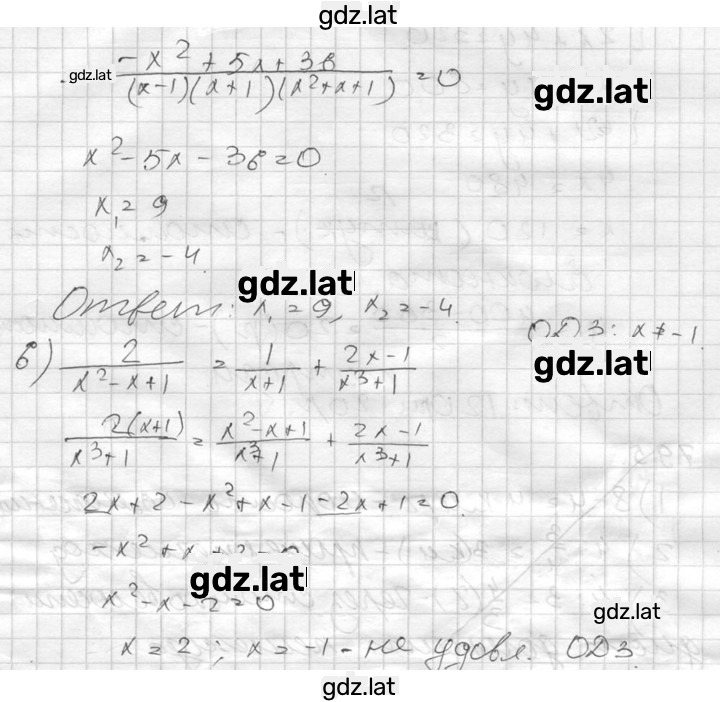 gdz.lat
gdz.lat (-x² + 5x + 36)/((x-1)(x+1)(x²+x+1)) = 0
gdz.lat
x² - 5x - 36 = 0
x₁ = 9
x₂ = -4
gdz.lat
Ответ: x₁ = 9, x₂ = -4.
ОДЗ: x ≠ -1.
б) 2/(x²-x+1) = 1/(x+1) + (2x-1)/(x³+1)
gdz.lat
2(x+1)/(x³+1) = (x²-x+1)/(x³+1) + (2x-1)/(x³+1)
2x+2-x²+x-1-2x+1=0.
-x²+x+2=0
gdz.lat
x²-x-2=0
gdz.lat
x=2; x=-1 - не удовл. ОДЗ.
gdz.lat